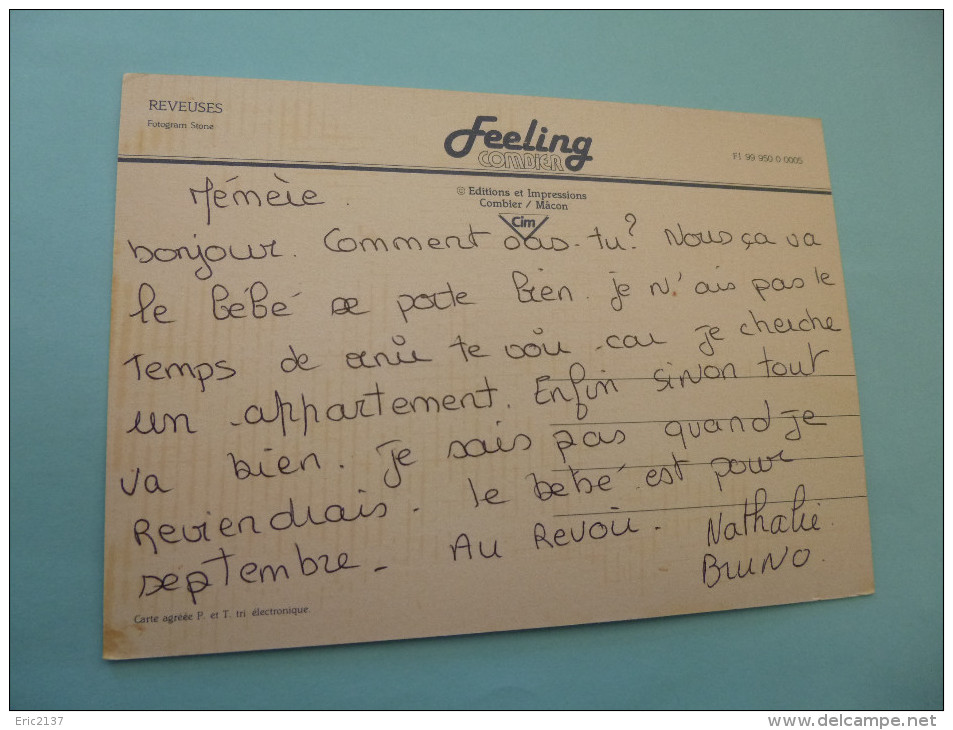 REVEUSES
Fotogram Stone
Feeling
COMBIER
F1 99 950 0 0005
© Editions et Impressions
Combier / Mâcon
Cim
Mémère.
bonjour. Comment vas-tu? Nous ça va
le bébé se porte bien. je n'ais pas le
temps de venir te voir car je cherche
un appartement. Enfin sinon tout
va bien. Je sais pas quand je
Reviendrais. le bébé est pour
septembre - Au Revoir - Nathalie.
BRUNO.
Carte agréée P. et T. tri électronique.
Eric2137
delcampe.net